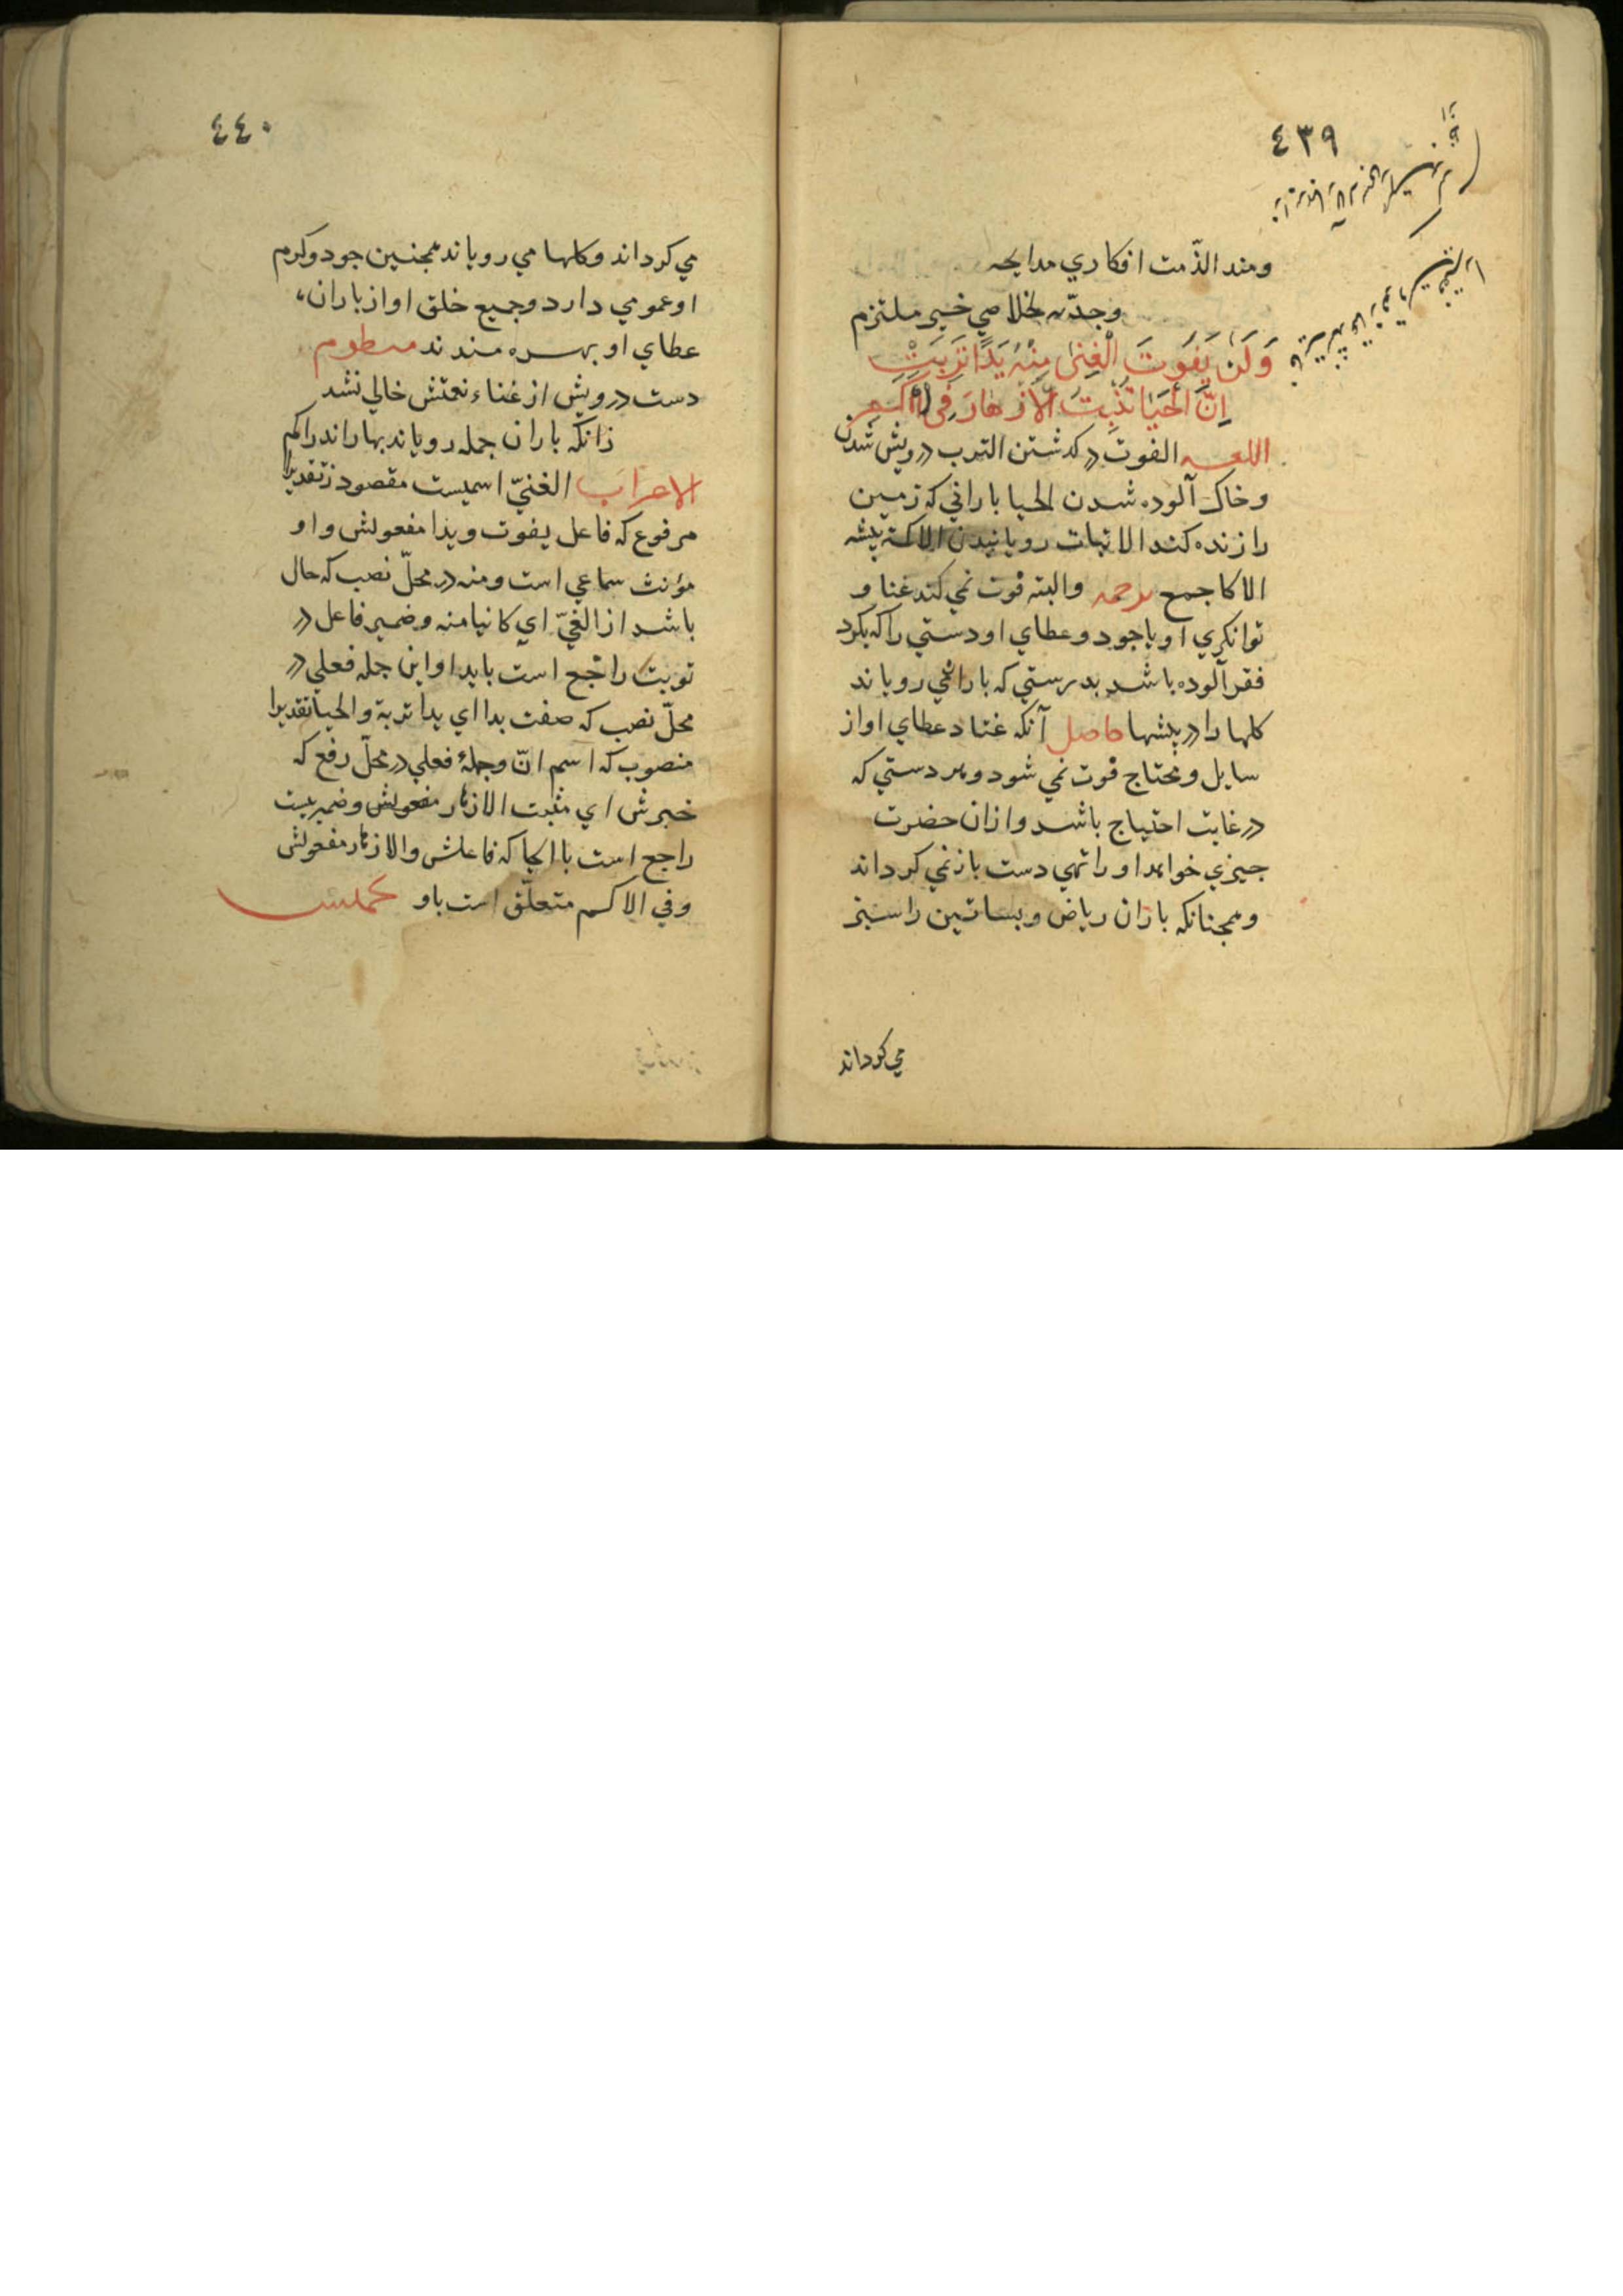 ٤٣٩
ومند الذّمت افكاري مدايحه
وجدّته لخلاصي خير ملتزم
وَلَنْ يَفُوتَ الْغِنىٰ مِنْهُ يَدًا تَرِبَتْ
اِنَّ الْحَيَا تُنْبِتُ الْاَزْهَارَ فِي الْاَكَمِ
اللغه الفوت درکذشتن الترب درویش شدن
وخاک آلوده شدن الحیا بارانی که زمین
را زنده کند الانبات رویانیدن الاکمة پشه
الاکا جمع ترجمه والبته فوت نمی کند غنا و
توانکری او یاجود وعطای او دستی را که بکرد
فقر آلوده باشد بدرستی که باران می رویاند
کلها را در پشها حاصل آنکه غنا وعطای او از
سایل ومحتاج فوت نمی شود وهر دستی که
در غایت احتیاج باشد واز ان حضرت
چیزی خواهد او را تهی دست باز نمی کرداند
وهمچنانکه باران ریاض وبساتین را سبز
می کرداند
٤٤٠
می کرداند وکلها می رویاند همچنین جود وکرم
او عمومی دارد وجمیع خلق او از باران
عطای او بهره مندند منظوم
دست درویش از غناء نعمتش خالی نشد
زانکه باران جمله رویاند بهار اندر اکم
الاعراب الغنیّ اسمیست مقصور تقدیرا
مرفوع که فاعل یفوت ویدا مفعولش واو
مؤنث سماعی است ومنه در محلّ نصب که حال
باشد از الغنیّ ای کاینا منه وضمیر فاعل در
تربت راجع است بایدا واین جمله فعلی در
محلّ نصب که صفت یدا ای یدا تربة والحیا تقدیرا
منصوب که اسم انّ وجملهٔ فعلی در محلّ رفع که
خبرش ای منبت الازهار مفعولش وضمیر ینبت
راجع است با الحیا که فاعلش والازهار مفعولش
وفی الاکم متعلّق است باو تخمیس